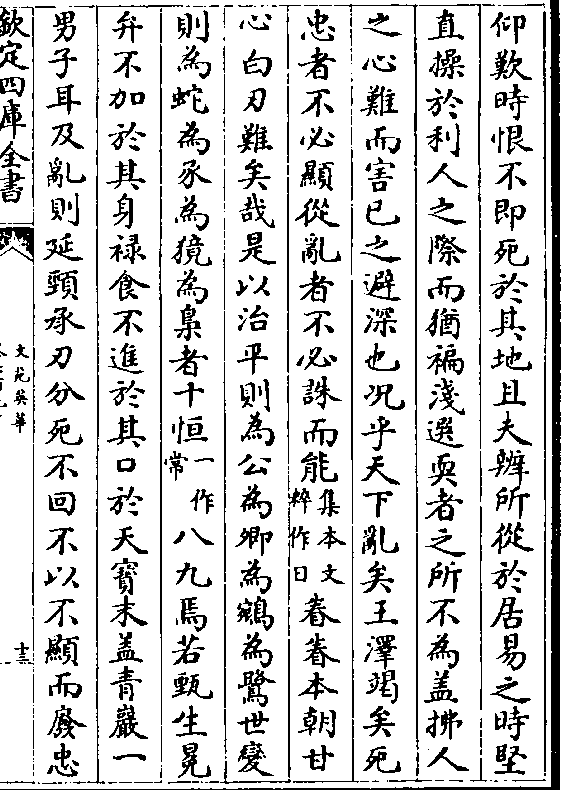 仰歎時恨不即死於其地且夫辨所從於居易之時堅
直操於利人之際而猶褊淺選耎者之所不為盖拂人
之心難而害已之避深也况乎天下亂矣王澤竭矣死
忠者不必顯從亂者不必誅而能集本文粹作日眷眷本朝甘
心白刃難矣哉是以治平則為公為卿為鵷為鷺世變
則為蛇為豕為獍為梟者十恒一作常八九焉若甄生冕
弁不加於其身禄食不進於其口於天寶末盖青巖一
男子耳及亂則延頸承刃分死不回不以不顯而廢忠
欽定四庫全書
文苑英華
十三